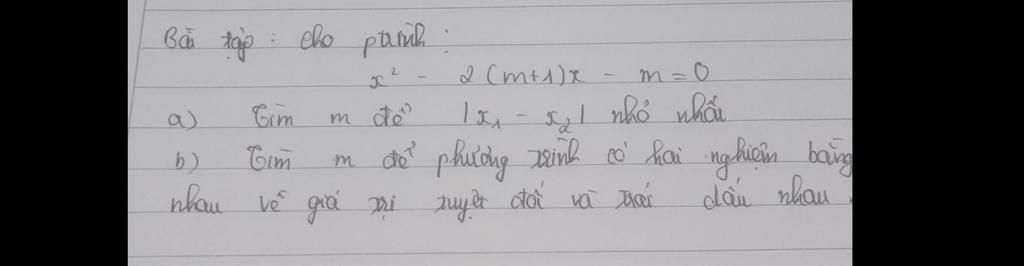 Bài tập : cho ptrình :
x² - 2(m+1)x - m = 0
a) Tìm m để |x₁ - x₂| nhỏ nhất
b) Tìm m để phương trình có hai nghiệm bằng
nhau về giá trị tuyệt đối và trái dấu nhau